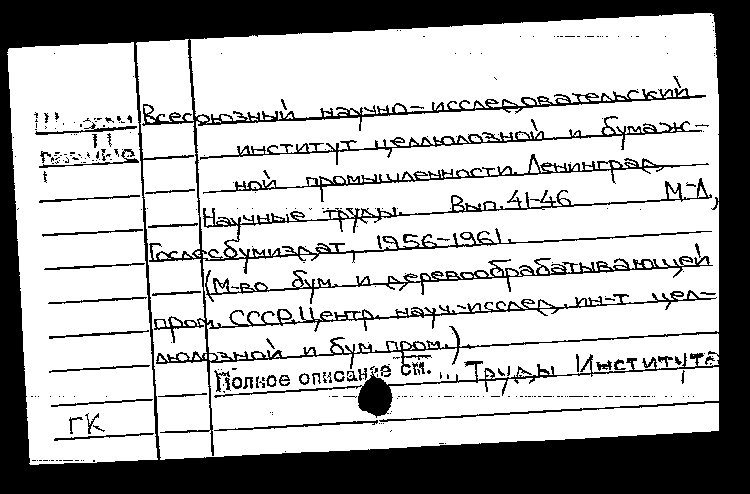 Всесоюзный научно-исследовательский
институт целлюлозной и бумаж-
ной промышленности. Ленинград
Научные труды. Вып. 41-46 М-Л,
Гослесбумиздат, 1956-1961.
(М-во бум. и деревообрабатывающей
пром. СССР. Центр. науч.-исслед. ин-т цел-
люлозной и бум. пром.).
Полное описание см. ... Труды Института
ГК